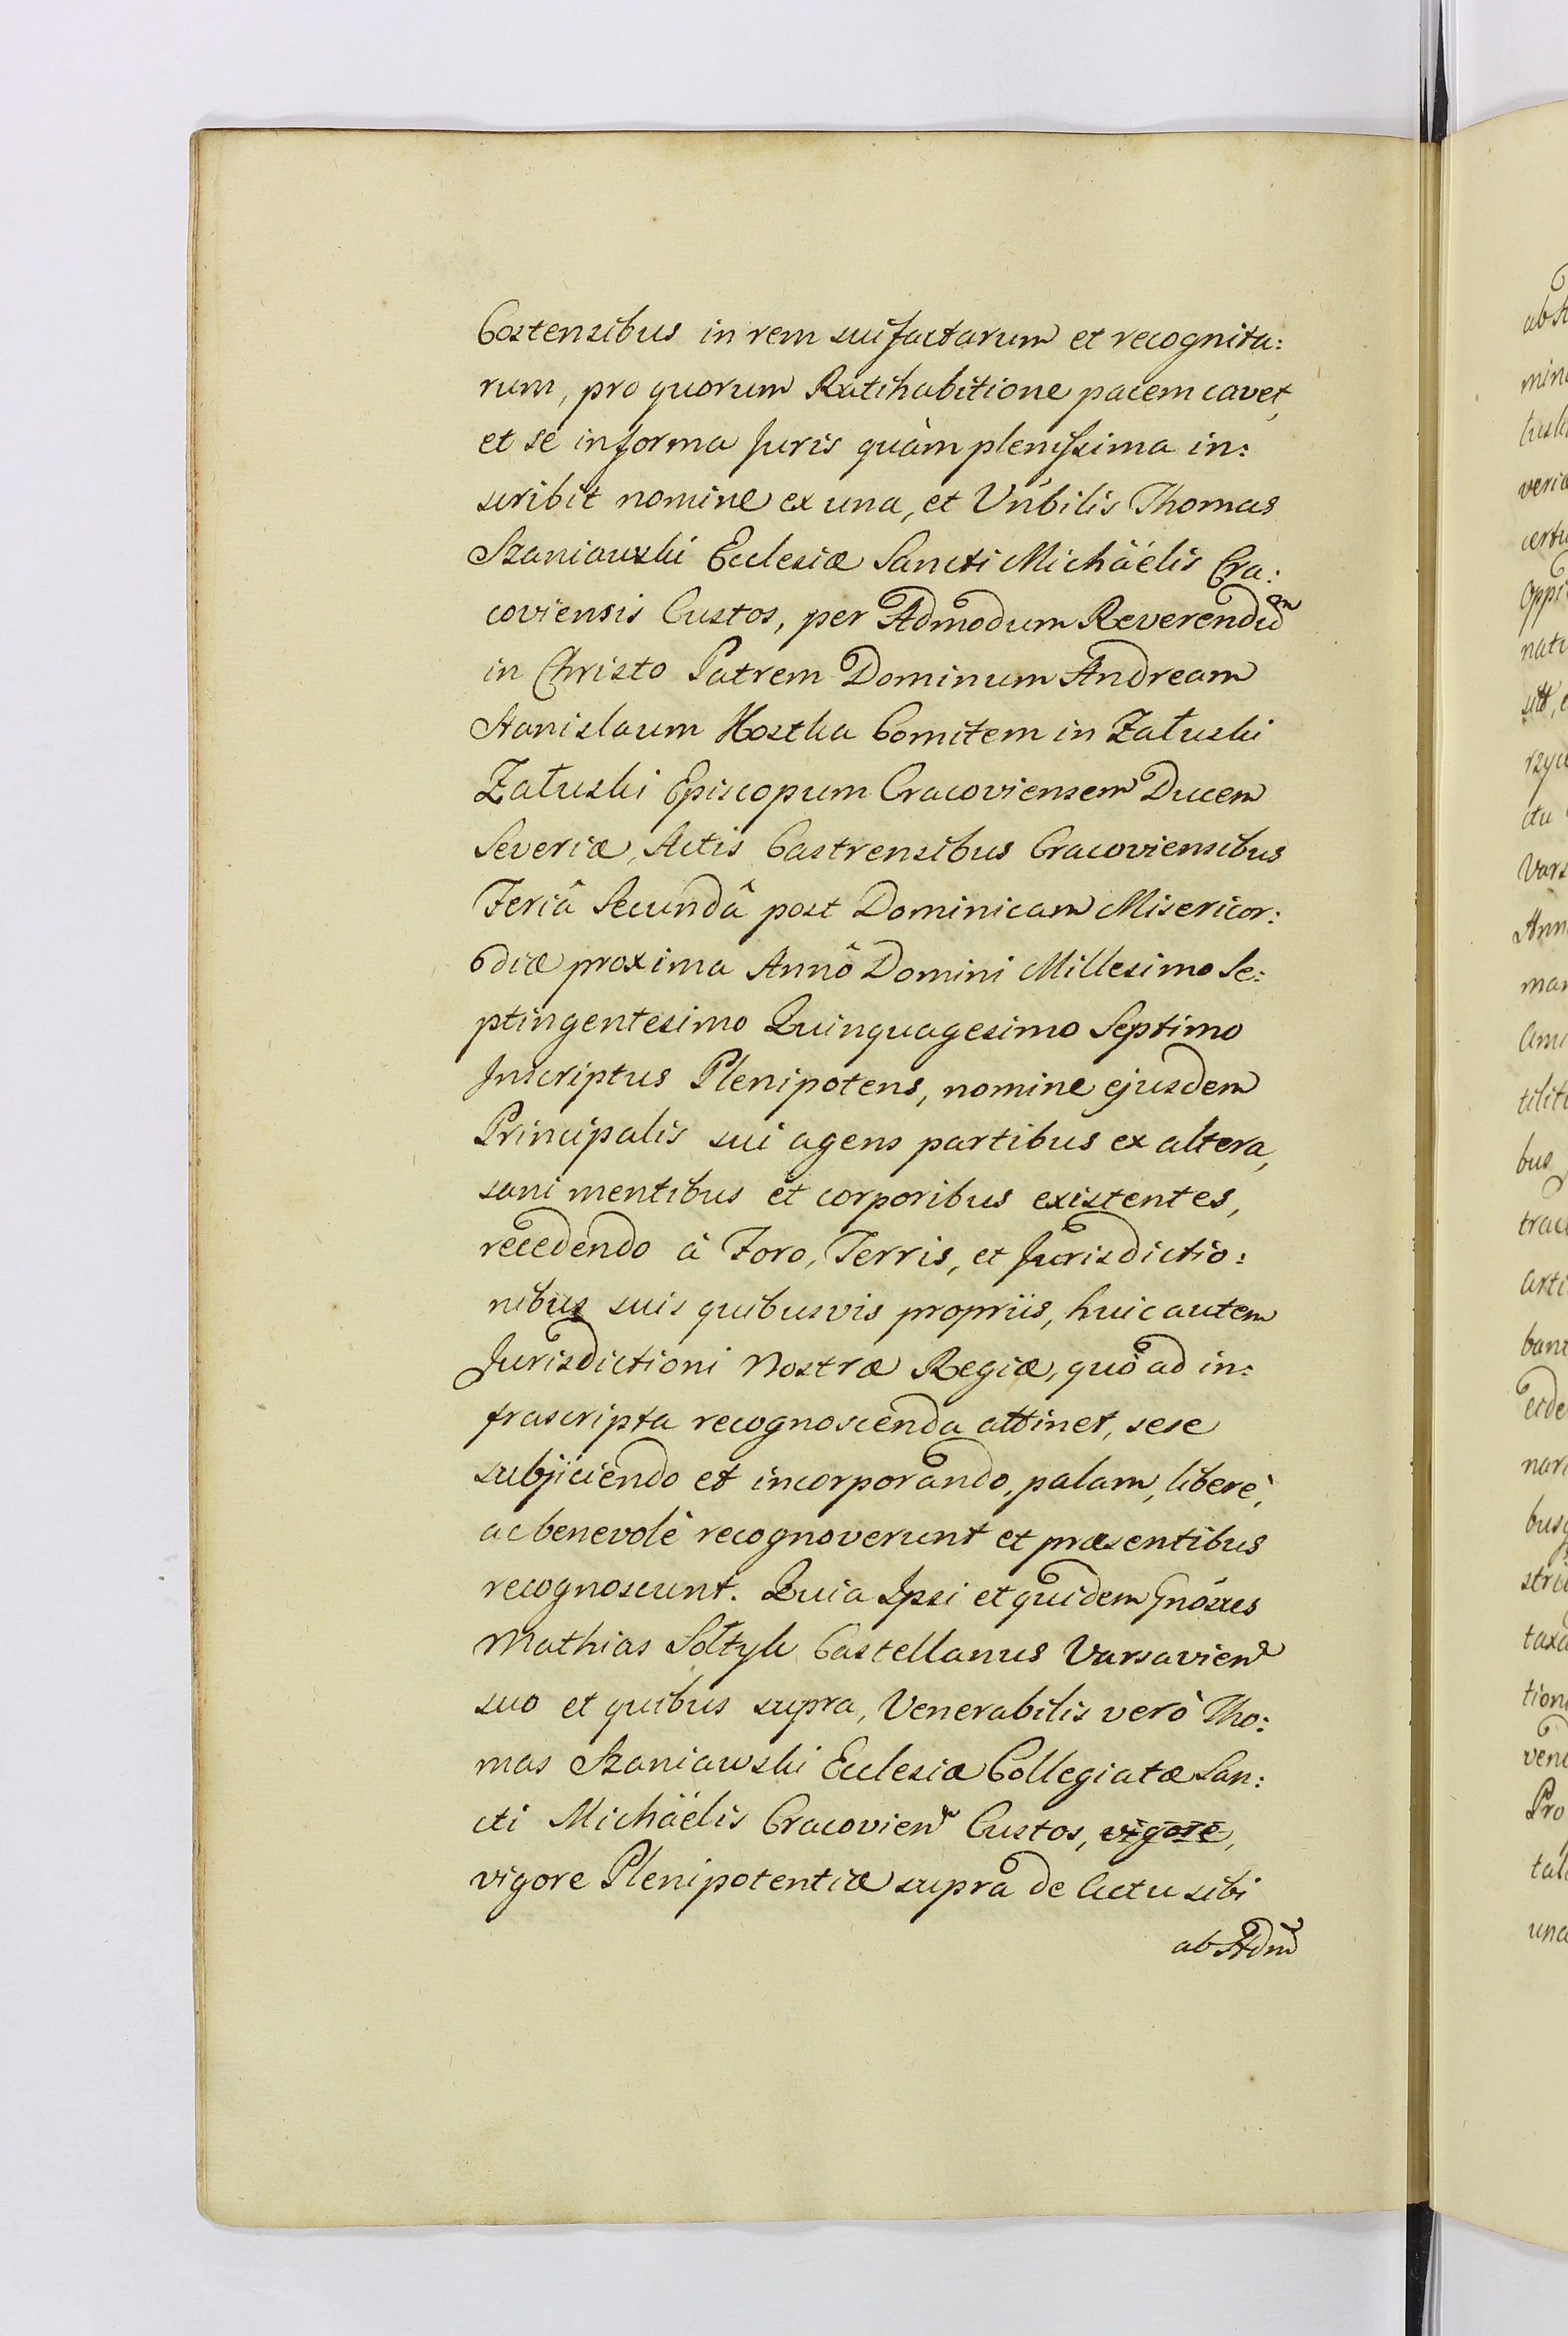 Costensibus in rem sui factarum et recognita:
rum, pro quorum Ratihabitione pacem cavet,
et se in forma Juris quàm plenissima in:
scribit nomine ex una, et Vnbilis Thomas
Szaniawski Ecclesiæ Sancti Michäélis Cra:
coviensis Custos, per Admodum Reverendum
in Christo Patrem Dominum Andream
Stanislaum Kostka Comitem in Załuski
Załuski Episcopum Cracoviensem Ducem
Severiæ, Actis Castrensibus Cracoviensibus
Feriâ Secundâ post Dominicam Misericor:
diæ proxima Annô Domini Millesimo Se:
ptingentesimo Quinquagesimo Septimo
Inscriptus Plenipotens, nomine ejusdem
Principalis sui agens partibus ex altera,
sani mentibus et corporibus existentes,
recedendo à Foro, Terris, et Jurisdictio:
nibus suis quibusvis propriis, huic autem
Jurisdictioni Nostræ Regiæ, quò ad in:
frascripta recognoscenda attinet, sese
subjiciendo et incorporando, palam, liberè,
ac benevolè recognoverunt et præsentibus
recognoscunt. Quia Ipsi et quidem Gnósus
Mathias Sołtyk Castellanus Varsavien
suo et quibus supra, Venerabilis verò Tho:
mas Szaniawski Ecclesiæ Collegiatæ San:
cti Michäélis Cracovien Custos, vigore,
vigore Plenipotentiæ supra de Actu sibi
ab Adm